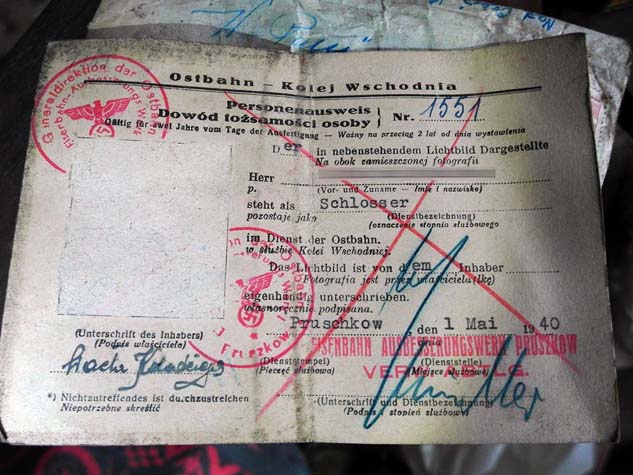 Ostbahn – Kolej Wschodnia
Personenausweis
Dowód tożsamości osoby } Nr. 1551
Gültig für zwei Jahre vom Tage der Ausfertigung — Ważny na przeciąg 2 lat od dnia wystawienia
Der in nebenstehendem Lichtbild Dargestellte
Na obok zamieszczonej fotografii
Herr
p. (Vor- und Zuname — Imię i nazwisko)
steht als Schlosser
pozostaje jako (Dienstbezeichnung)
(oznaczenie stopnia służbowego
im Dienst der Ostbahn.
w służbie Kolei Wschodniej.
Das Lichtbild ist von dem Inhaber
Fotografia jest przez właściciela(lkę)
eigenhändig unterschrieben.
własnoręcznie podpisana.
Pruschkow, den 1 Mai 1940
EISENBAHN AUSBESSERUNGSWERK PRUSZKOW
(Unterschrift des Inhabers)
(Podpis właściciela)
(Dienststempel)
(Pieczęć służbowa)
(Dienststelle)
(Miejsce służbowe)
*) Nichtzutreffendes ist durchzustreichen
Niepotrzebne skreślić
(Unterschrift und Dienstbezeichnung)
(Podpis i stopień służbowy)
Generaldirektion der Ostbahn